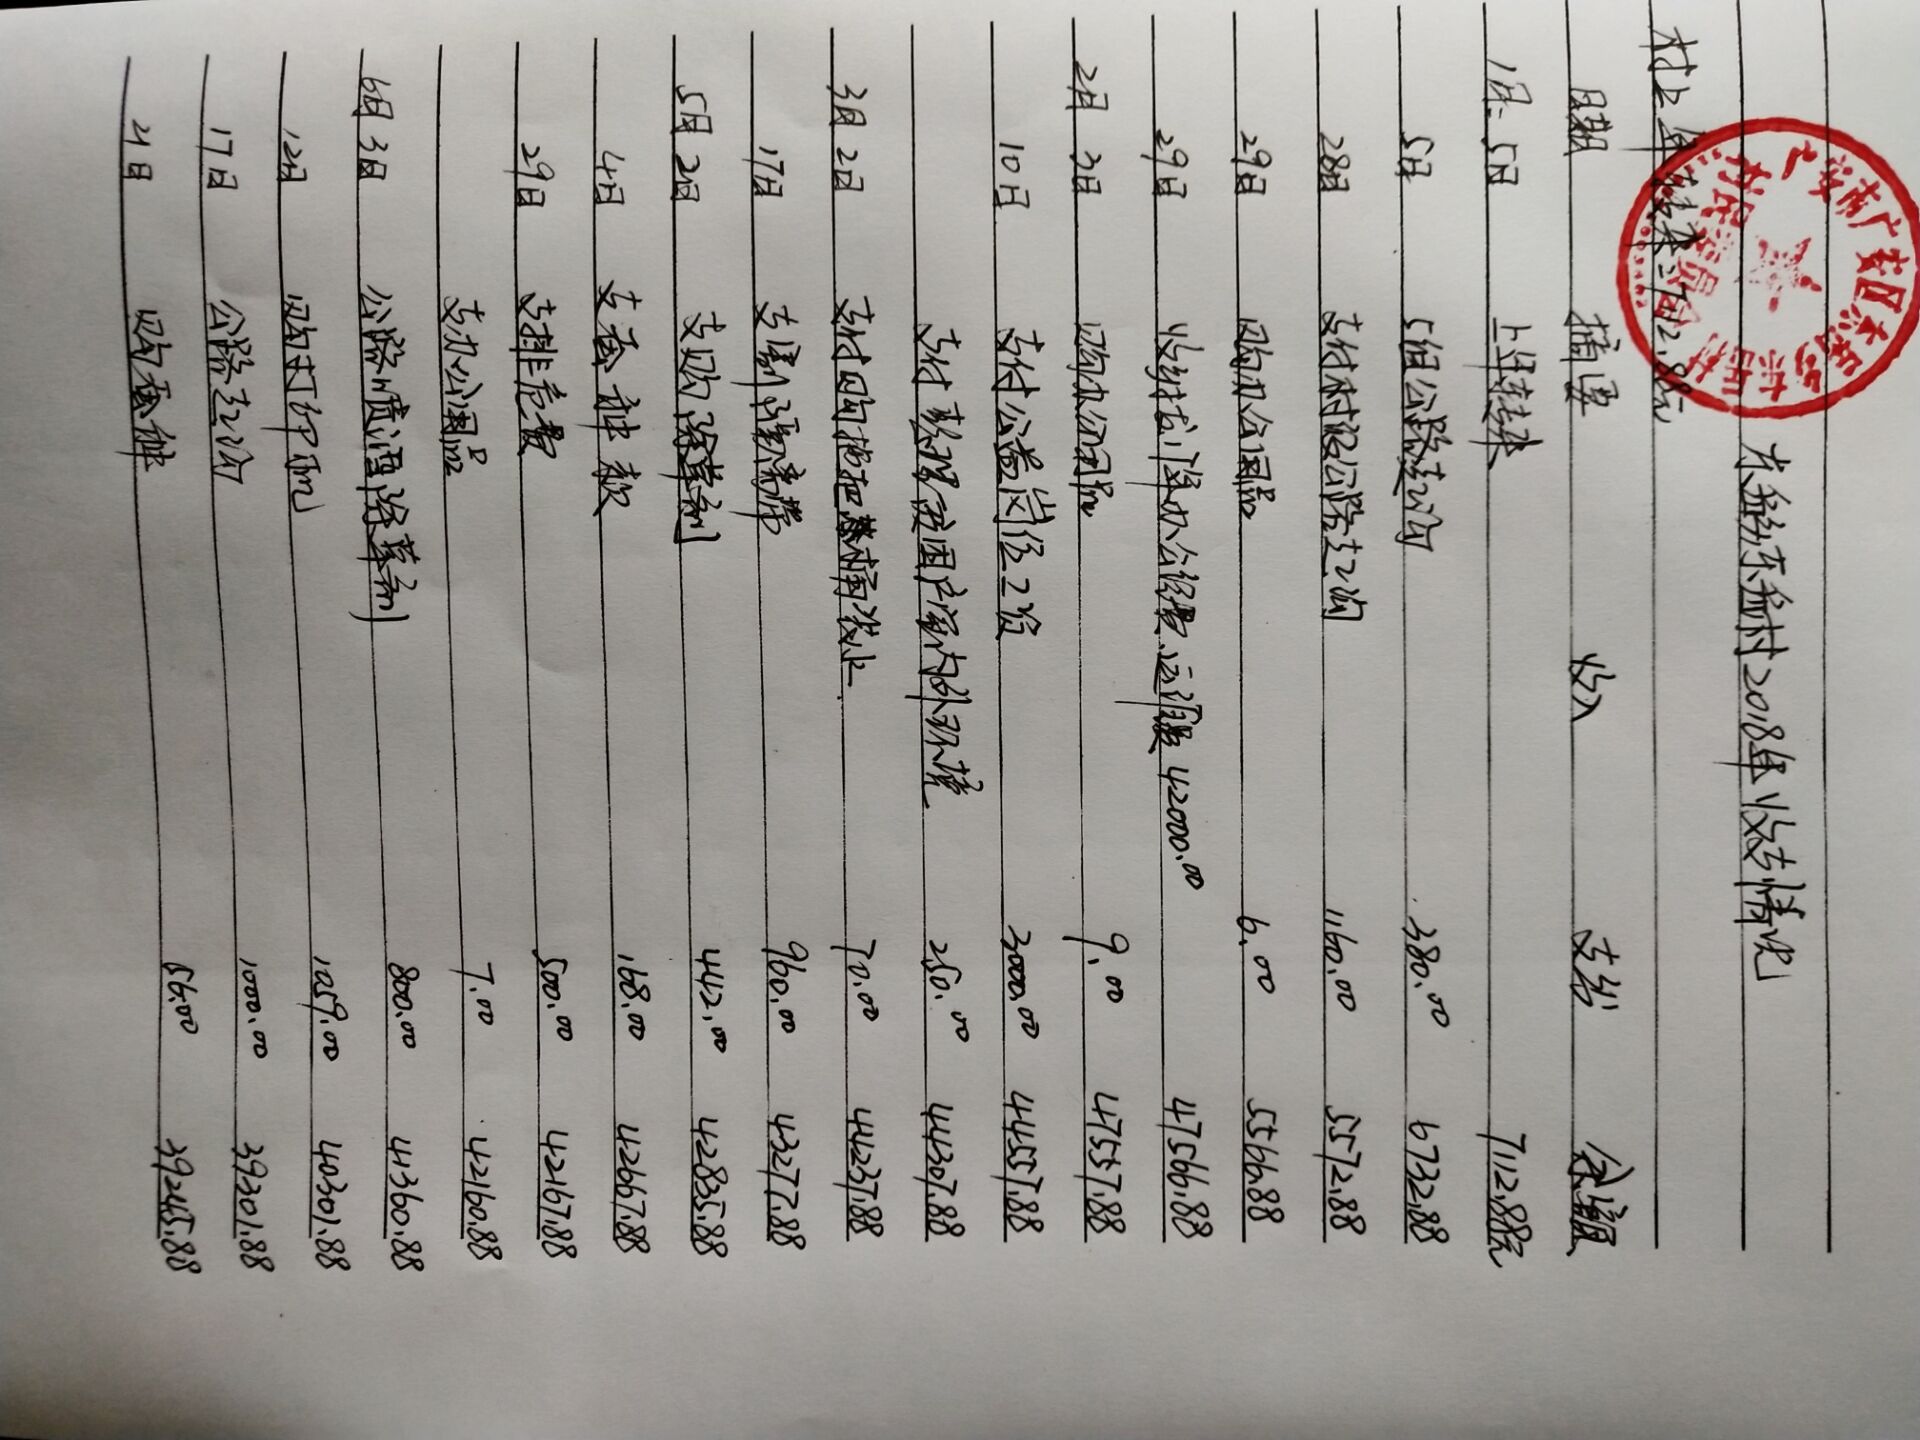 东岳乡东岳村2018年收支情况
村上年转来:7112.88元
日期 摘要 收入 支出 余额
1月5日 上年转来 7112.88元
5日 5组公路支沟 380.00 6732.88
28日 支付村级公路支沟 1160.00 5572.88
29日 购办公用品 6.00 5566.88
29日 收到拨付 办公经费、运 42000.00 47566.88
2月3日 购办公用品 9.00 47557.88
10日 支付公益岗位工资 3000.00 44557.88
支付 贫困户室内外环境 250.00 44307.88
3月2日 支付购拖把 70.00 44237.88
17日 支 费 960.00 43277.88
5月2日 支购除草剂 442.00 42835.88
4日 支 款 168.00 42667.88
29日 支排危费 500.00 42167.88
支办公用品 7.00 42160.88
6月3日 公路喷洒除草剂 800.00 41360.88
12日 购打印机 1059.00 40301.88
17日 公路支沟 1000.00 39301.88
21日 购 56.00 39245.88